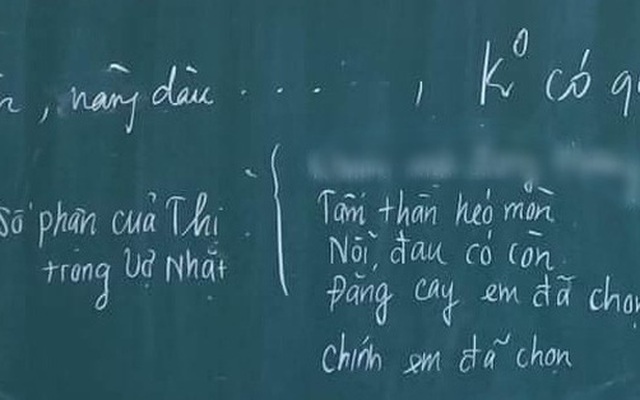 , nàng dâu . . . . , K° có
Số phận của Thị
trong Vợ Nhặt
Tấm thân héo mòn
Nỗi đau cỏ còn
Đắng cay em đã
chính em đã chọn